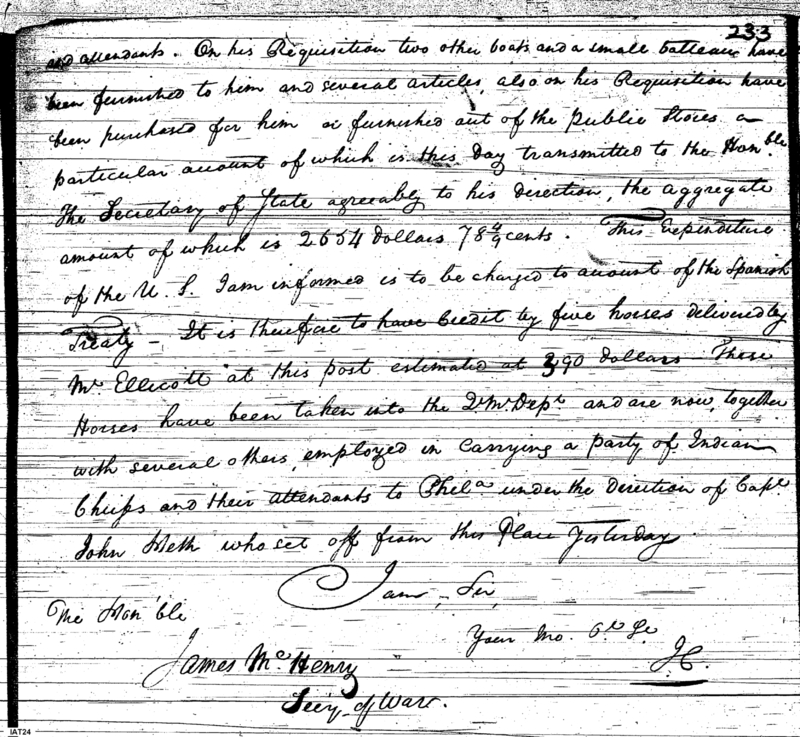 233
and attendants. On his Requisition two other boats and a small batteau have
been furnished to him and several articles, also on his Requisition have
been purchased for him or furnished out of the Public Stores a
particular amount of which is this Day transmitted to the Honble.
The Secretary of State agreeably to his direction, the aggregate
amount of which is 2654 dollars 78 4/9 cents. This Expenditure
of the U. S. I am informed is to be charged to amount of the Spanish
Treaty – It is therefore to have Credit by five horses delivered by
Mr Ellicott at this post estimated at 390 dollars These
Horses have been taken into the Qr. Mr. Dept. and are now, together
with several others, employed in Carrying a party of Indian
Chiefs and their attendants to Phela. under the Direction of Capt.
John Heth who set off from this Place Yesterday.
I am, Sir,
The Hon'ble
Your Mo. Ot. St.
James McHenry
J C.
Secy. of Warr.
IAT24